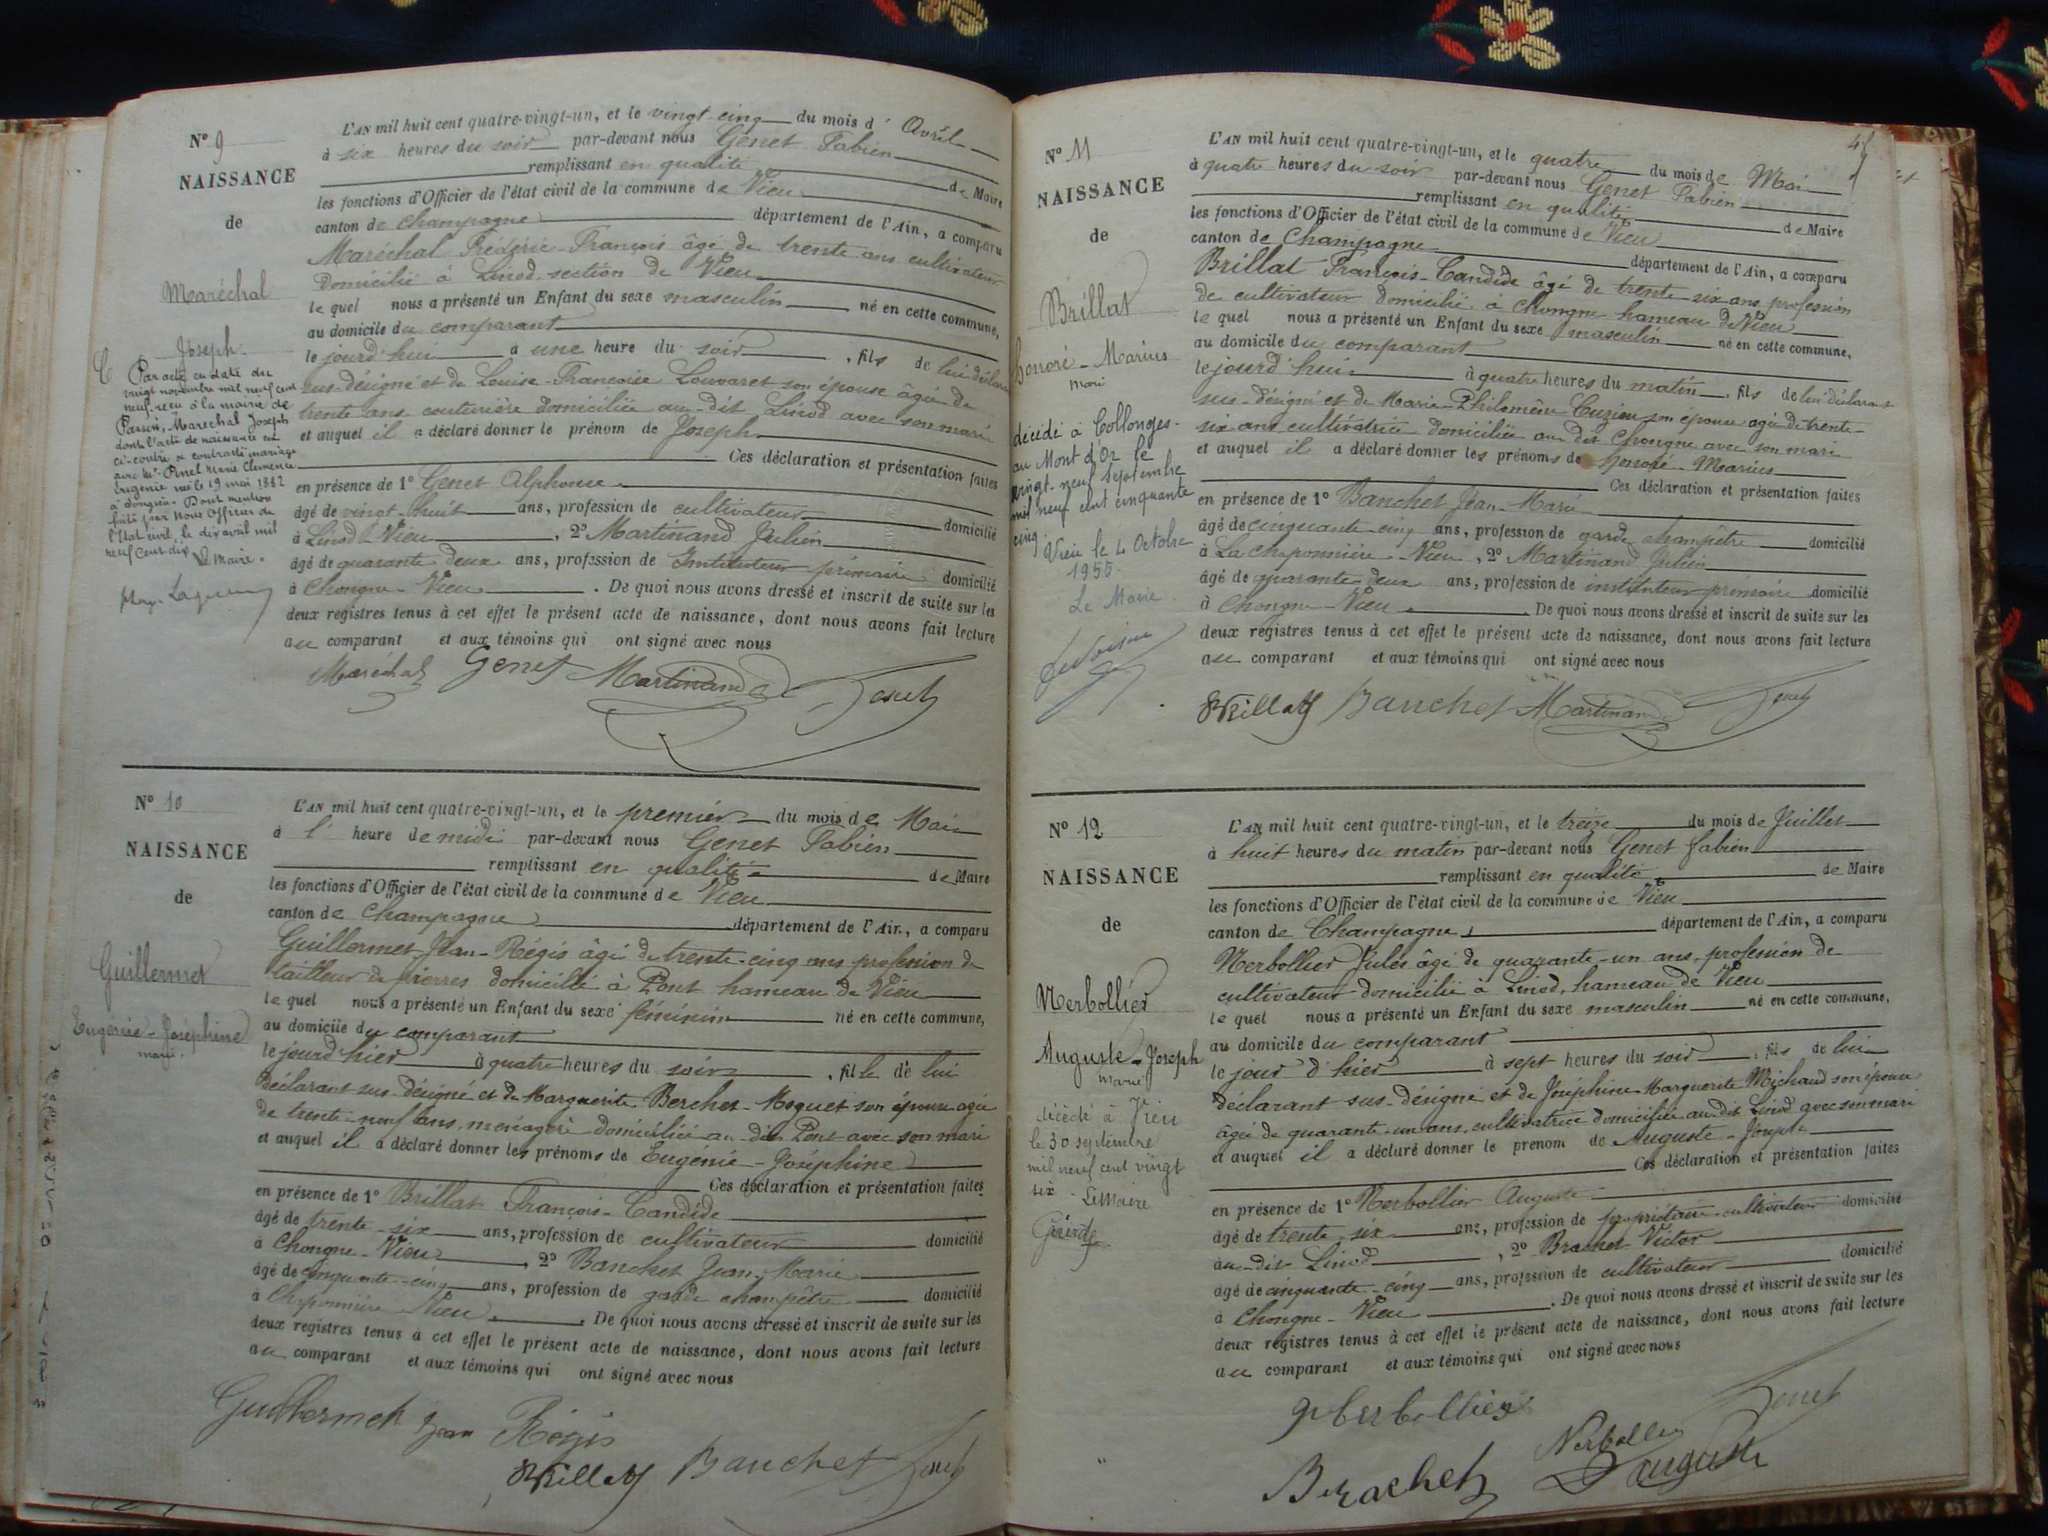 Nº 9
NAISSANCE
de
Maréchal
Joseph
Par acte en date du
vingt novembre mil neuf cent
neuf reçu à la mairie de
Passin, Maréchal Joseph
dont l'acte de naissance est
ci-contre a contracté mariage
avec Melle Pinel Marie Clémence
Eugénie née le 19 mai 1882
à Songieu. Dont mention
faite par Nous Officier de
l'Etat civil, le dix avril mil
neuf cent dix
Le Maire.
L'AN mil huit cent quatre-vingt-un, et le vingt-cinq du mois d' Avril
à six heures du soir par-devant nous Genet Fabien
remplissant en qualité de Maire
les fonctions d'Officier de l'état civil de la commune de Vieu
canton de Champagne département de l'Ain, a comparu
Maréchal Fréderic-François âgé de trente ans cultivateur
domicilié à Linod section de Vieu
le quel nous a présenté un Enfant du sexe masculin né en cette commune,
au domicile du comparant
le jourd'hui à une heure du soir, fils de lui déclarant
sus-désigné et de Louise-Françoise Louvaret son épouse âgée de
trente ans couturière domiciliée au-dit Linod avec son mari
et auquel il a déclaré donner le prénom de Joseph
Ces déclaration et présentation faites
en présence de 1º Genet Alphonse
âgé de vingt-huit ans, profession de cultivateur domicilié
à Linod Vieu, 2º Martinand Julien
âgé de quarante deux ans, profession de Instituteur primaire domicilié
à Chongne-Vieu. De quoi nous avons dressé et inscrit de suite sur les
deux registres tenus à cet effet le présent acte de naissance, dont nous avons fait lecture
au comparant et aux témoins qui ont signé avec nous
Maréchal Genet Martinand Genet
Nº 10
NAISSANCE
de
Guillermet
Eugénie-Joséphine
marié
L'AN mil huit cent quatre-vingt-un, et le premier du mois de Mai
à l' heure de midi par-devant nous Genet Fabien
remplissant en qualité de Maire
les fonctions d'Officier de l'état civil de la commune de Vieu
canton de Champagne département de l'Ain, a comparu
Guillermet Jean-Régis âgé de trente-cinq ans profession de
tailleur de pierres domicilié à Pont hameau de Vieu
le quel nous a présenté un Enfant du sexe féminin né en cette commune,
au domicile du comparant
le jourd'hier à quatre heures du soir, fille de lui
déclarant sus-désigné et de Marguerite Berchet-Moguet son épouse agée
de trente-neuf ans, ménagère domiciliée au-dit Pont avec son mari
et auquel il a déclaré donner les prénoms de Eugenie-Joséphine
Ces déclaration et présentation faites
en présence de 1º Brillat François-Candide
âgé de trente-six ans, profession de cultivateur domicilié
à Chongne-Vieu, 2º Banchet Jean-Marie
âgé de cinquante-cinq ans, profession de garde champêtre domicilié
à Chaponnière Vieu. De quoi nous avons dressé et inscrit de suite sur les
deux registres tenus à cet effet le présent acte de naissance, dont nous avons fait lecture
au comparant et aux témoins qui ont signé avec nous
Guillermet Jean Régis
Brillat Banchet Genet
Nº 11
NAISSANCE
de
Brillat
Honoré-Marius
marié
décédé à Collonges-
au Mont d'Or le
vingt-neuf Septembre
mil neuf cent cinquante
cinq
Vieu le 4 Octobre
1955
Le Maire
L'AN mil huit cent quatre-vingt-un, et le quatre du mois de Mai
à quatre heures du soir par-devant nous Genet Fabien
remplissant en qualité de Maire
les fonctions d'Officier de l'état civil de la commune de Vieu
canton de Champagne département de l'Ain, a comparu
Brillat François-Candide âgé de trente-six ans profession
de cultivateur domicilié à Chongne hameau de Vieu
le quel nous a présenté un Enfant du sexe masculin né en cette commune,
au domicile du comparant
le jourd'hui à quatre heures du matin, fils de lui déclarant
sus-désigné et de Marie-Philomène Cuzieu son épouse agée de trente-
six ans cultivatrice domiciliée au dit Chongne avec son mari
et auquel il a déclaré donner les prénoms de Honoré-Marius
Ces déclaration et présentation faites
en présence de 1º Banchet Jean-Marie
âgé de cinquante-cinq ans, profession de garde champêtre domicilié
à La Chaponnière-Vieu, 2º Martinand Julien
âgé de quarante deux ans, profession de instituteur primaire domicilié
à Chongne-Vieu. De quoi nous avons dressé et inscrit de suite sur les
deux registres tenus à cet effet le présent acte de naissance, dont nous avons fait lecture
au comparant et aux témoins qui ont signé avec nous
Brillat Banchet Martinand Genet
Nº 12
NAISSANCE
de
Nerbollier
Auguste-Joseph
marié
décédé à Vieu
le 30 septembre
mil neuf cent vingt
six - Le Maire
L'AN mil huit cent quatre-vingt-un, et le treize du mois de Juillet
à huit heures du matin par-devant nous Genet Fabien
remplissant en qualité de Maire
les fonctions d'Officier de l'état civil de la commune de Vieu
canton de Champagne département de l'Ain, a comparu
Nerbollier Jules âgé de quarante-un ans, profession de
cultivateur domicilié à Linod, hameau de Vieu
le quel nous a présenté un Enfant du sexe masculin né en cette commune,
au domicile du comparant
le jour d'hier à sept heures du soir, fils de lui
déclarant sus-désigné et de Joséphine-Marguerite Michaud son épouse
âgée de quarante-un ans, cultivatrice domiciliée au dit Linod avec son mari
et auquel il a déclaré donner le prenom de Auguste-Joseph
Ces déclaration et présentation faites
en présence de 1º Nerbollier Auguste
âgé de trente-six ans, profession de propriétaire-cultivateur domicilié
au-dit Linod, 2º Brachet Victor
âgé de cinquante-cinq ans, profession de cultivateur domicilié
à Chongne-Vieu. De quoi nous avons dressé et inscrit de suite sur les
deux registres tenus à cet effet le présent acte de naissance, dont nous avons fait lecture
au comparant et aux témoins qui ont signé avec nous
Nerbollier Genet
Brachet Nerbollier Auguste